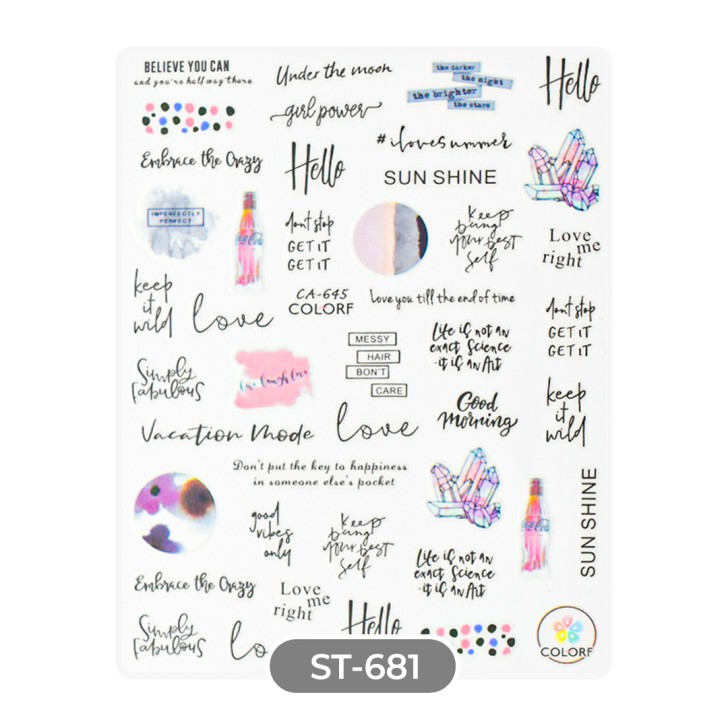 BELIEVE YOU CAN
and you're half way there
Under the moon
the darker
the night
the brighter
the stars
Hello
girl power
#ilovesummer
Embrace the Crazy
Hello
SUN SHINE
IMPERFECTLY
PERFECT
Coca-Cola
don't stop
GET IT
GET IT
Keep
being
your best
self
Love
me
right
keep
it
wild
love
CA-645
COLORF
love you till the end of time
Life is not an
exact Science
-it is an Art
don't stop
GET IT
GET IT
MESSY
HAIR
BON'T
CARE
Simply
fabulous
live laugh love
Good
Morning
keep
it
wild
Vacation Mode
love
Don't put the key to happiness
in someone else's pocket
SUN SHINE
Coca-Cola
good
vibes
only
Keep
being
your best
self
Life is not an
exact Science
-it is an Art
Embrace the Crazy
Love
me
right
Simply
fabulous
lo
Hello
COLORF
ST-681